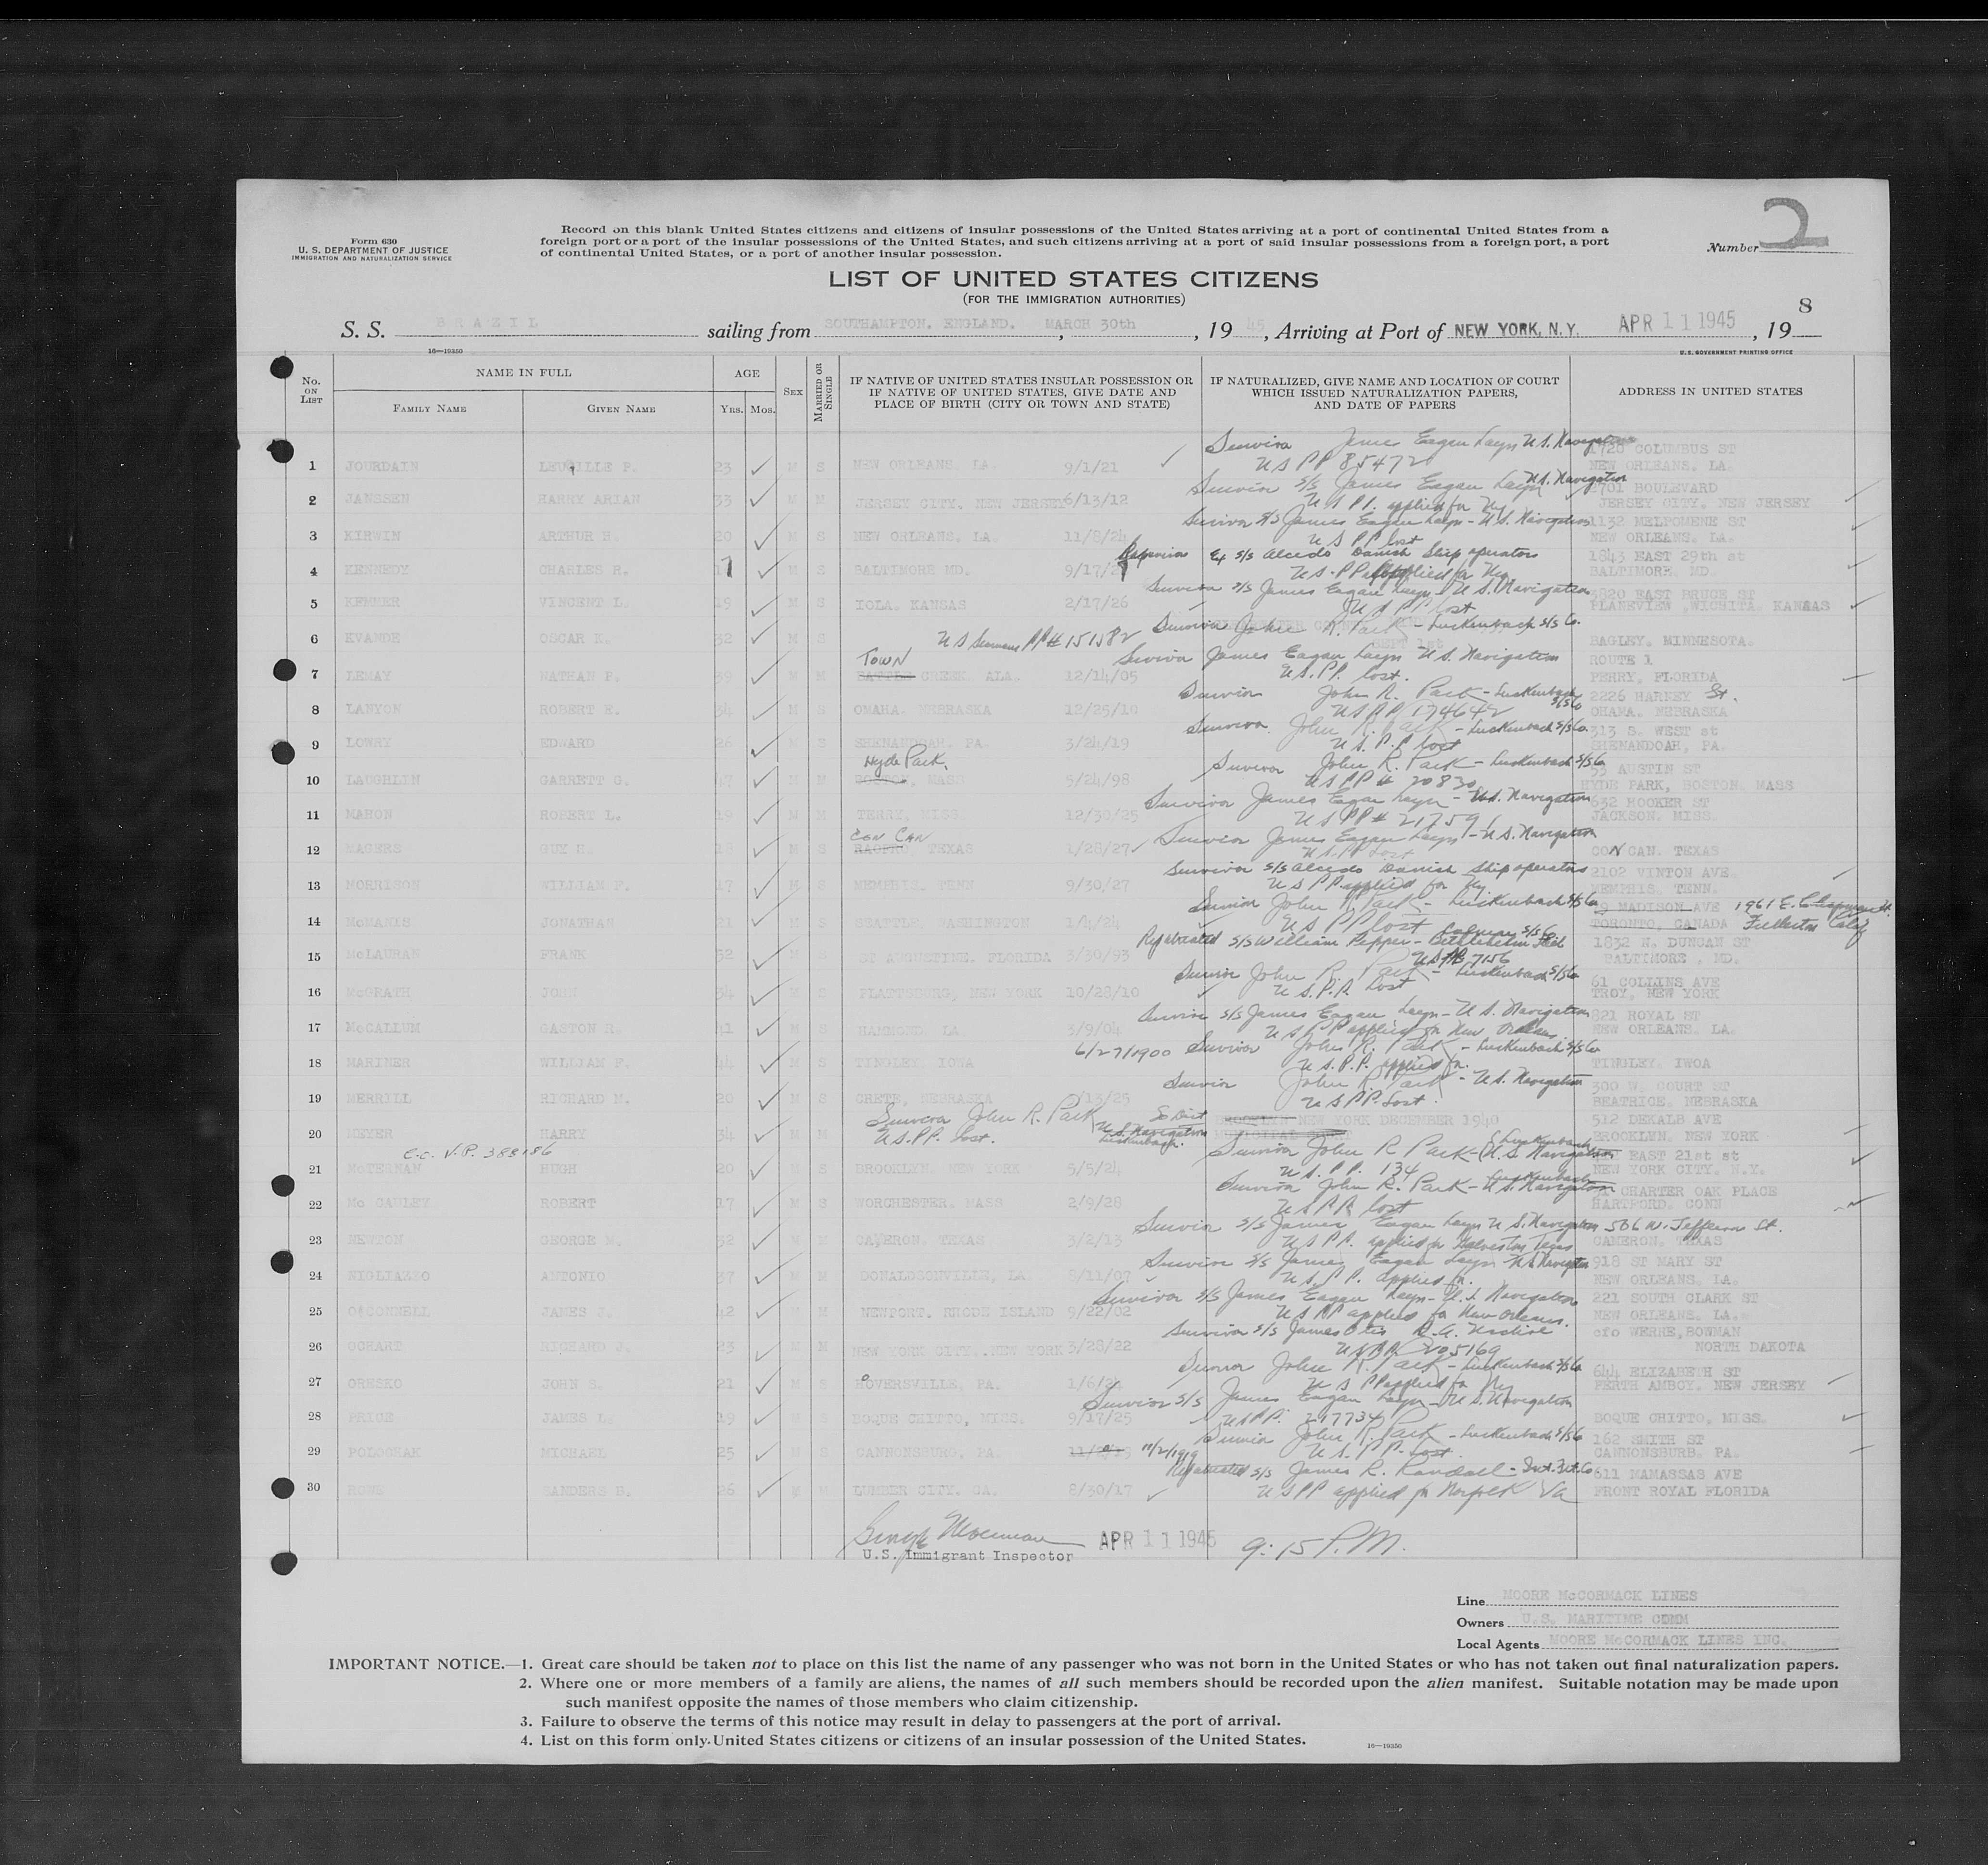 Form 630
U. S. DEPARTMENT OF JUSTICE
IMMIGRATION AND NATURALIZATION SERVICE
Record on this blank United States citizens and citizens of insular possessions of the United States arriving at a port of continental United States from a
foreign port or a port of the insular possessions of the United States, and such citizens arriving at a port of said insular possessions from a foreign port, a port
of continental United States, or a port of another insular possession.
Number 2
LIST OF UNITED STATES CITIZENS
(FOR THE IMMIGRATION AUTHORITIES)
8
S. S. BRAZIL sailing from SOUTHAMPTON. ENGLAND. , MARCH 30th , 19 45 , Arriving at Port of NEW YORK, N.Y. APR 11 1945 , 19
16—19350 U.S. GOVERNMENT PRINTING OFFICE
No. ON LIST
NAME IN FULL
FAMILY NAME GIVEN NAME
AGE
Yrs. Mos.
SEX
MARRIED OR SINGLE
IF NATIVE OF UNITED STATES INSULAR POSSESSION OR
IF NATIVE OF UNITED STATES, GIVE DATE AND
PLACE OF BIRTH (CITY OR TOWN AND STATE)
IF NATURALIZED, GIVE NAME AND LOCATION OF COURT
WHICH ISSUED NATURALIZATION PAPERS,
AND DATE OF PAPERS
ADDRESS IN UNITED STATES
Eagan Layn U.S. Navigation 1728 COLUMBUS ST
1 JOURDAIN 23 M S NEW ORLEANS. LA. 9/1/21 U S PP 85472 NEW ORLEANS. LA.
Survivor S/S James Eagan Layn U.S. Navigation 2701 BOULEVARD
2 JANSSEN HARRY ARIAN 33 M M JERSEY CITY. NEW JERSEY 6/13/12 U S PP. applied for Ny JERSEY CITY. NEW JERSEY
Survivor S/S James Eagan Layn - U.S. Navigation 1132 MELPOMENE ST
3 KIRWIN ARTHUR 20 M S NEW ORLEANS. LA. 11/8/24 U S PP lost NEW ORLEANS. LA.
Ex S/S Alcedo Danish Ship operators 1843 EAST 29th st
4 KENNEDY CHARLES R. 17 M S BALTIMORE MD. 9/17/2 U.S. PP applied for Ny BALTIMORE. MD.
Survivor S/S James Eagan Layn - U.S. Navigation 3820 EAST BRUCE ST
5 KEMMER VINCENT L. 19 M S IOLA. KANSAS 2/17/26 U S PP lost PLANEVIEW .WICHITA. KANSAS
Survivor John R. Park - Luckenbach S/S Co.
6 KVANDE OSCAR K. 32 M S U S Seamens PP# 151582 BAGLEY. MINNESOTA.
TOWN Survivor James Eagan Layn U.S. Navigation ROUTE 1
7 LEMAY NATHAN F. 39 M M CREEK. ALA. 12/14/05 U.S. PP. lost. PERRY. FLORIDA
Survivor John R. Park - Luckenbach S/S Co 2226 HARNEY St.
8 LANYON ROBERT E. 34 M S OMAHA. NEBRASKA 12/25/10 U S PP 174642 OHAMA. NEBRASKA
Survivor John R. Park - Luckenbach S/S Co. 313 S. WEST st
9 LOWRY EDWARD 26 M S SHENANDOAH. PA. 3/24/19 U.S. P.P lost SHENANDOAH, PA.
Hyde Park. Survivor John R. Park - Luckenbach S/S Co 53 AUSTIN ST
10 LAUGHLIN GARRETT G. 47 M M BOSTON. MASS 5/24/98 U S PP # 20830 HYDE PARK, BOSTON. MASS
Survivor James Eagan Layn - U.S. Navigation 632 HOOKER ST
11 MAHON ROBERT L. 19 M M TERRY, MISS. 12/30/25 U S PP # 217591 JACKSON. MISS.
CON CAN Survivor James Eagan Layn - U.S. Navigation
12 MAGERS GUY 18 M S TEXAS 1/28/27 U.S. PP lost CON CAN. TEXAS
Survivor S/S Alcedo Danish Ship operators 2102 VINTON AVE.
13 MORRISON WILLIAM F. 17 M S MEMPHIS. TENN 9/30/27 U S PP applied for Ny MEMPHIS. TENN.
Survivor John R. Park - Luckenbach S/S Co MADISON AVE 1961 E. Chapman St.
14 McMANIS JONATHAN 21 M S SEATTLE. WASHINGTON 1/4/24 U S PP lost TORONTO, CANADA Fullerton Calif
Repatriated S/S William Pepper - Calmar S/S Co Bethlehem Steel 1832 N. DUNCAN ST
15 McLAURAN FRANK 52 M S ST AUGUSTINE. FLORIDA 3/30/93 U S PP 7156 BALTIMORE , MD.
Survivor John R. Park - Luckenbach S/S Co 61 COLLINS AVE
16 McGRATH JOHN 34 M S PLATTSBURG, NEW YORK 10/28/10 U S. P.P. lost TROY, NEW YORK
Survivor S/S James Eagan Layn - U S. Navigation 821 ROYAL ST
17 McCALLUM GASTON R. 41 M S HAMMOND. LA 3/9/04 U S PP applied for New Orleans NEW ORLEANS. LA.
6/27/1900 Survivor John R. Park - Luckenbach S/S Co
18 MARINER WILLIAM F. 44 M S TINGLEY IOWA U.S. P.P. applied for. TINGLEY. IWOA
Survivor John R. Park - U.S. Navigation 300 W. COURT ST
19 MERRILL RICHARD M. 20 M S CRETE, NEBRASKA /13/25 U S PP. lost. BEATRICE. NEBRASKA
Survivor John R. Park U.S. Navigation Luckenbach. NEW YORK DECEMBER 1940 512 DEKALB AVE
20 MEYER HARRY 34 M M U.S. PP. lost. BROOKLYN. NEW YORK
Survivor John R Park - (U.S. Navigation Luckenbach EAST 21st st
21 McTERNAN HUGH 20 M S BROOKLYN. NEW YORK 5/5/24 U S. PP. 134 NEW YORK CITY. N.Y.
Survivor John R. Park - U.S. Navigation Luckenbach CHARTER OAK PLACE
22 Mc CAULEY ROBERT 17 M S WORCHESTER. MASS 2/9/28 U S PP. lost HARTFORD. CONN
Survivor S/S James Eagan Layn U S. Navigation 506 W. Jefferson St.
23 NEWTON GEORGE 32 M M CAMERON. TEXAS 3/2/13 U S PP. applied for Galveston Texas CAMERON. TEXAS
Survivor S/S James Eagan Layn U.S. Navigation 918 ST MARY ST
24 ANTONIO 37 M M DONALDSONVILLE, LA. 8/11/07 U.S. PP. applied for. NEW ORLEANS. LA.
Survivor S/S James Eagan Layn - U.S. Navigation 221 SOUTH CLARK ST
25 O'CONNELL JAMES J. 42 M M NEWPORT. RHODE ISLAND 9/22/02 U S PP applied for New Orleans. NEW ORLEANS. LA.
Survivor S/S James Otis cfo WERRE,BOWMAN
26 OCHART RICHARD J. 23 M M NEW YORK CITY..NEW YORK 3/28/22 NORTH DAKOTA
Survivor John R. Park - Luckenbach S/S Co 644 ELIZABETH ST
27 ORESKO JOHN S. 21 M S HOVERSVILLE, PA. 1/6/24 U S PP applied for Ny PERTH AMBOY. NEW JERSEY
Survivor S/S James Eagan Layn - U.S. Navigation
28 PRICE JAMES L. 19 M S BOQUE CHITTO, MISS. 9/17/25 U S PP. 217734 BOQUE CHITTO, MISS.
Survivor John R. Park - Luckenbach S/S Co 162 SMITH ST
29 POLOCHAK MICHAEL 25 M S CANNONSBURG, PA. 11/2/1919 U.S. PP. lost CANNONSBURB. PA.
Repatriated S/S James R. Randall - Int. Frt. Co 611 MAMASSAS AVE
30 ROWE SANDERS B. 26 M M LUMBER CITY. GA. 8/30/17 U S PP applied for Norfolk Va FRONT ROYAL FLORIDA
APR 11 1945 9:15 P.M.
U.S. Immigrant Inspector
Line MOORE McCORMACK LINES
Owners U.S. MARITIME COMM
Local Agents MOORE McCORMACK LINES INC.
IMPORTANT NOTICE.—1. Great care should be taken not to place on this list the name of any passenger who was not born in the United States or who has not taken out final naturalization papers.
2. Where one or more members of a family are aliens, the names of all such members should be recorded upon the alien manifest. Suitable notation may be made upon
such manifest opposite the names of those members who claim citizenship.
3. Failure to observe the terms of this notice may result in delay to passengers at the port of arrival.
4. List on this form only United States citizens or citizens of an insular possession of the United States.
16—19350